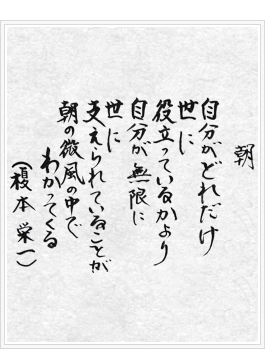 朝
自分がどれだけ
世に
役立っているかより
自分が無限に
世に
支えられていることが
朝の微風の中で
わかってくる
(榎本栄一)